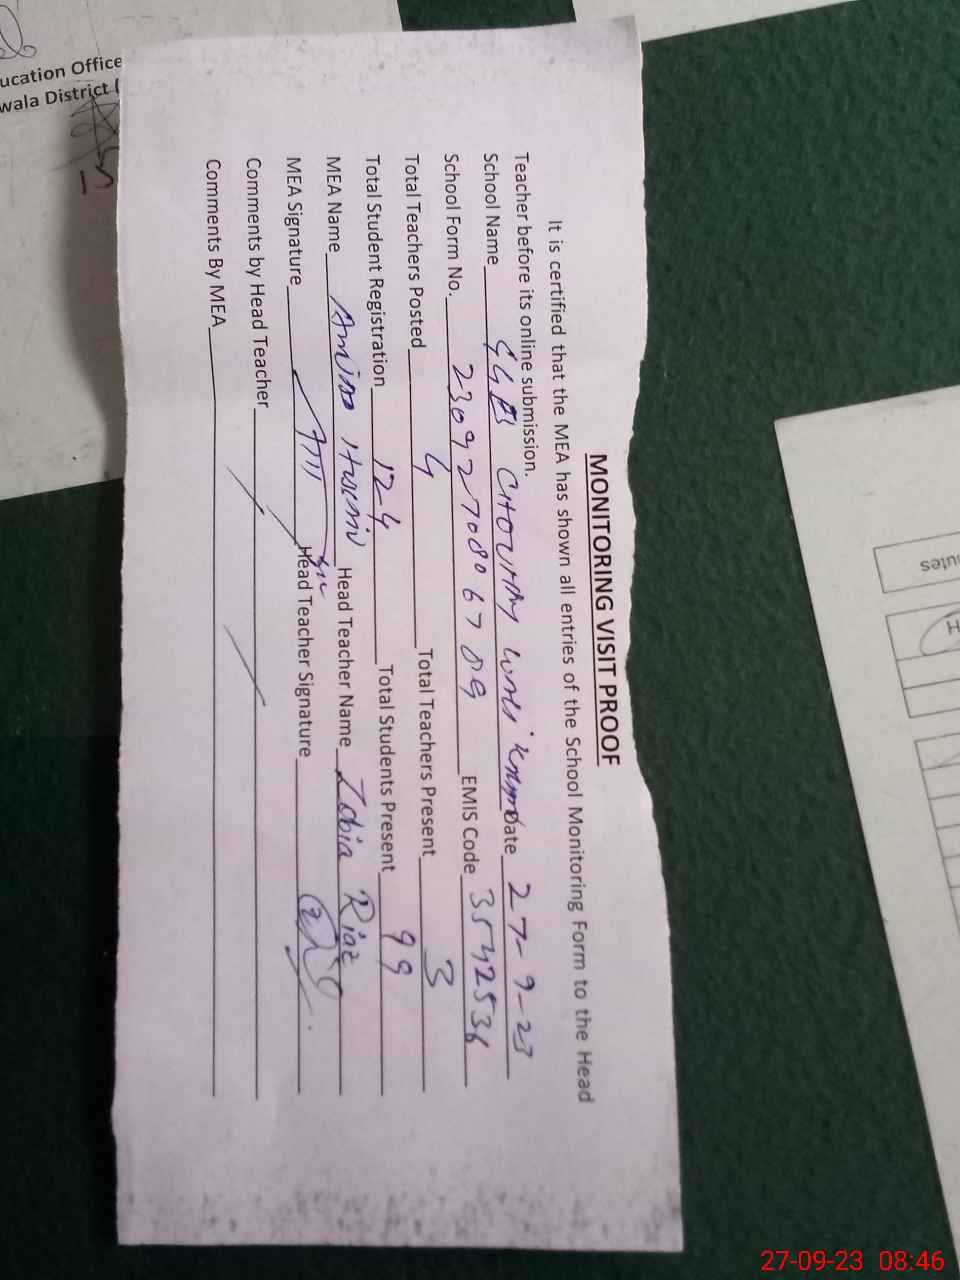 MONITORING VISIT PROOF
It is certified that the MEA has shown all entries of the School Monitoring Form to the Head
Teacher before its online submission.
School Name Date 27-9-23
School Form No. EMIS Code 3542536
Total Teachers Posted 4 Total Teachers Present 3
Total Student Registration 124 Total Students Present 99
MEA Name Head Teacher Name Zobia Riaz
MEA Signature Head Teacher Signature
Comments by Head Teacher
Comments By MEA
ucation Office
wala District
27-09-23 08:46